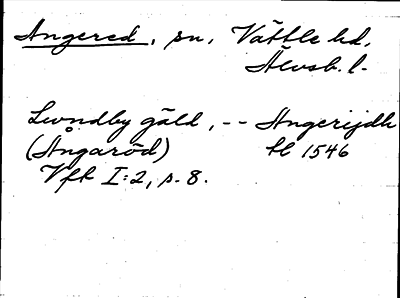 Angered, sn, Vättle hd,
Älvsb. l.
Lundby gäld, -- Angerijdh
(Ångaröd) tl 1546
Vfk I:2, s. 8.